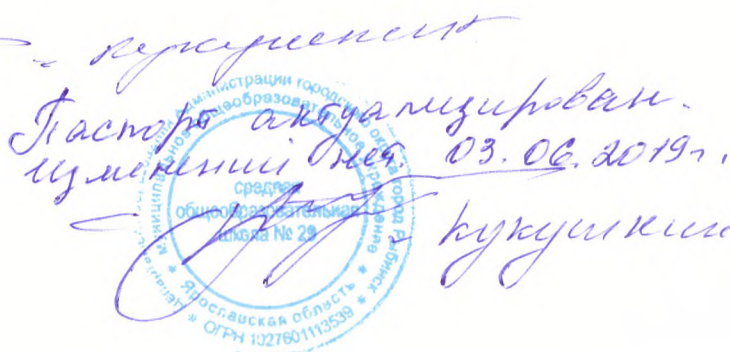 Паспорт актуализирован.
изменений нет. 03.06.2019г.
Кукушкин
администрации городского округа город Рыбинск
Муниципальное общеобразовательное учреждение
средняя
общеобразовательная
школа № 29
* Ярославская область *
* ОГРН 1027601113539 *